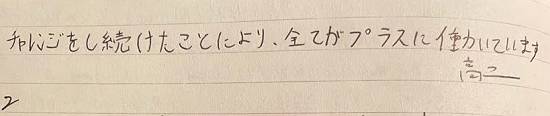 チャレンジをし続けたことにより、全てがプラスに働いています
高二
2